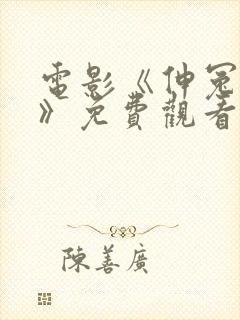 電影《伸冤
》免費觀看
陳善廣